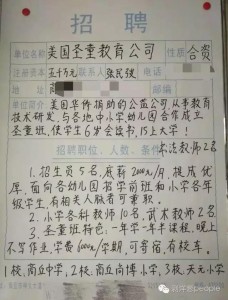 招聘
单位名称 美国圣童教育公司 性质 合资
注册资本 五十万元 联系人 张民锁 电话
地址
单位简介 美国华侨捐助的公益公司,从事教育
技术研发,与各地中小学幼儿园合作成立
圣童班,使学生6岁会读书,15上大学!
招聘职位、人数、条件 书法教师2名
1.招生员5名,底薪2000元/月,提成优
厚,面向各幼儿园招学前班和小学各年
级学生,有相关人脉者可兼职.
2.小学各科教师10名,武术教师2名
3.圣童班特色:一年学一年半课程,晚上
不写作业,学费6000元/学期,可寄宿,有校车.
1校,商丘中学,2校,商丘尚博小学,3校,天元小学
这年里people